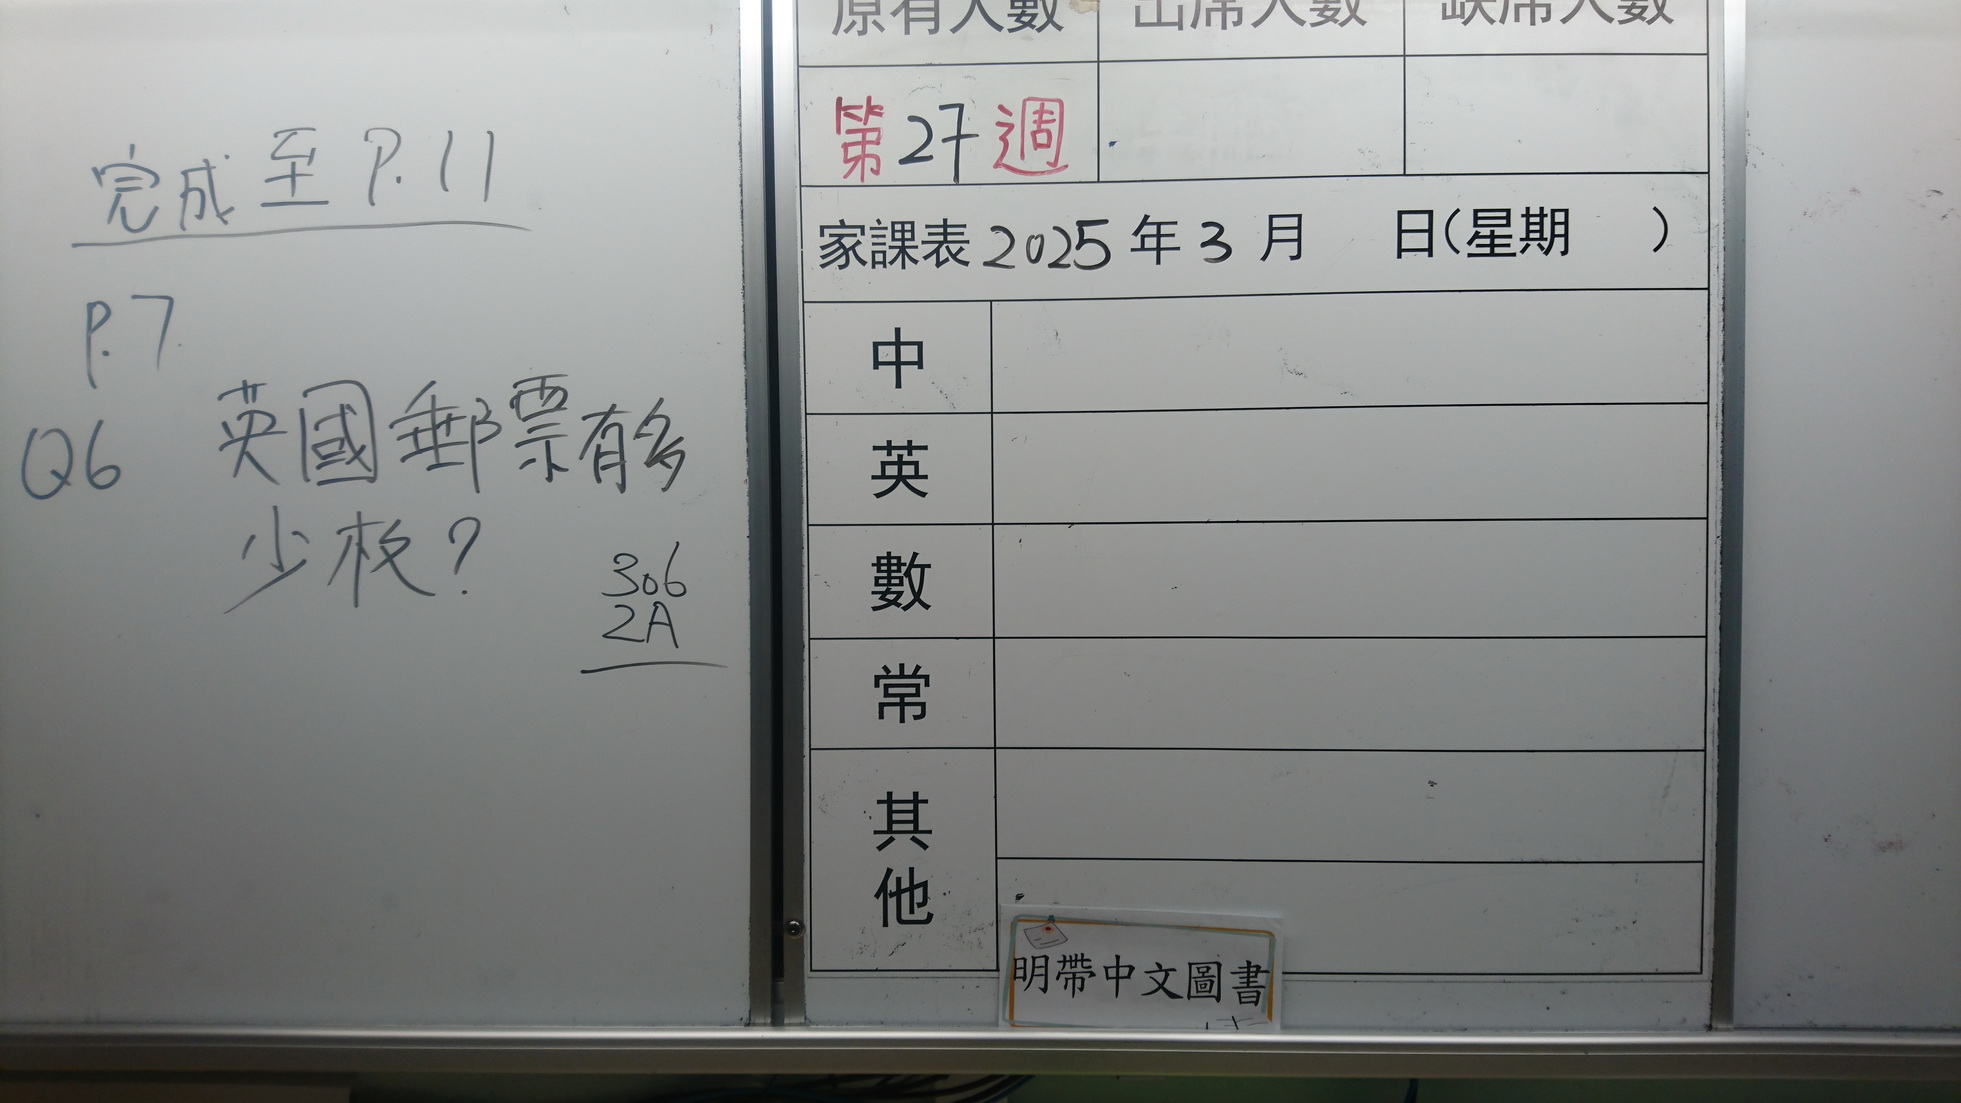 完成至P.11
P.7
Q6 英國郵票有多
少枚?
306
2A
原有人數 出席人數 缺席人數
第27週
家課表2025年3月 日(星期 )
中
英
數
常
其他
明帶中文圖書